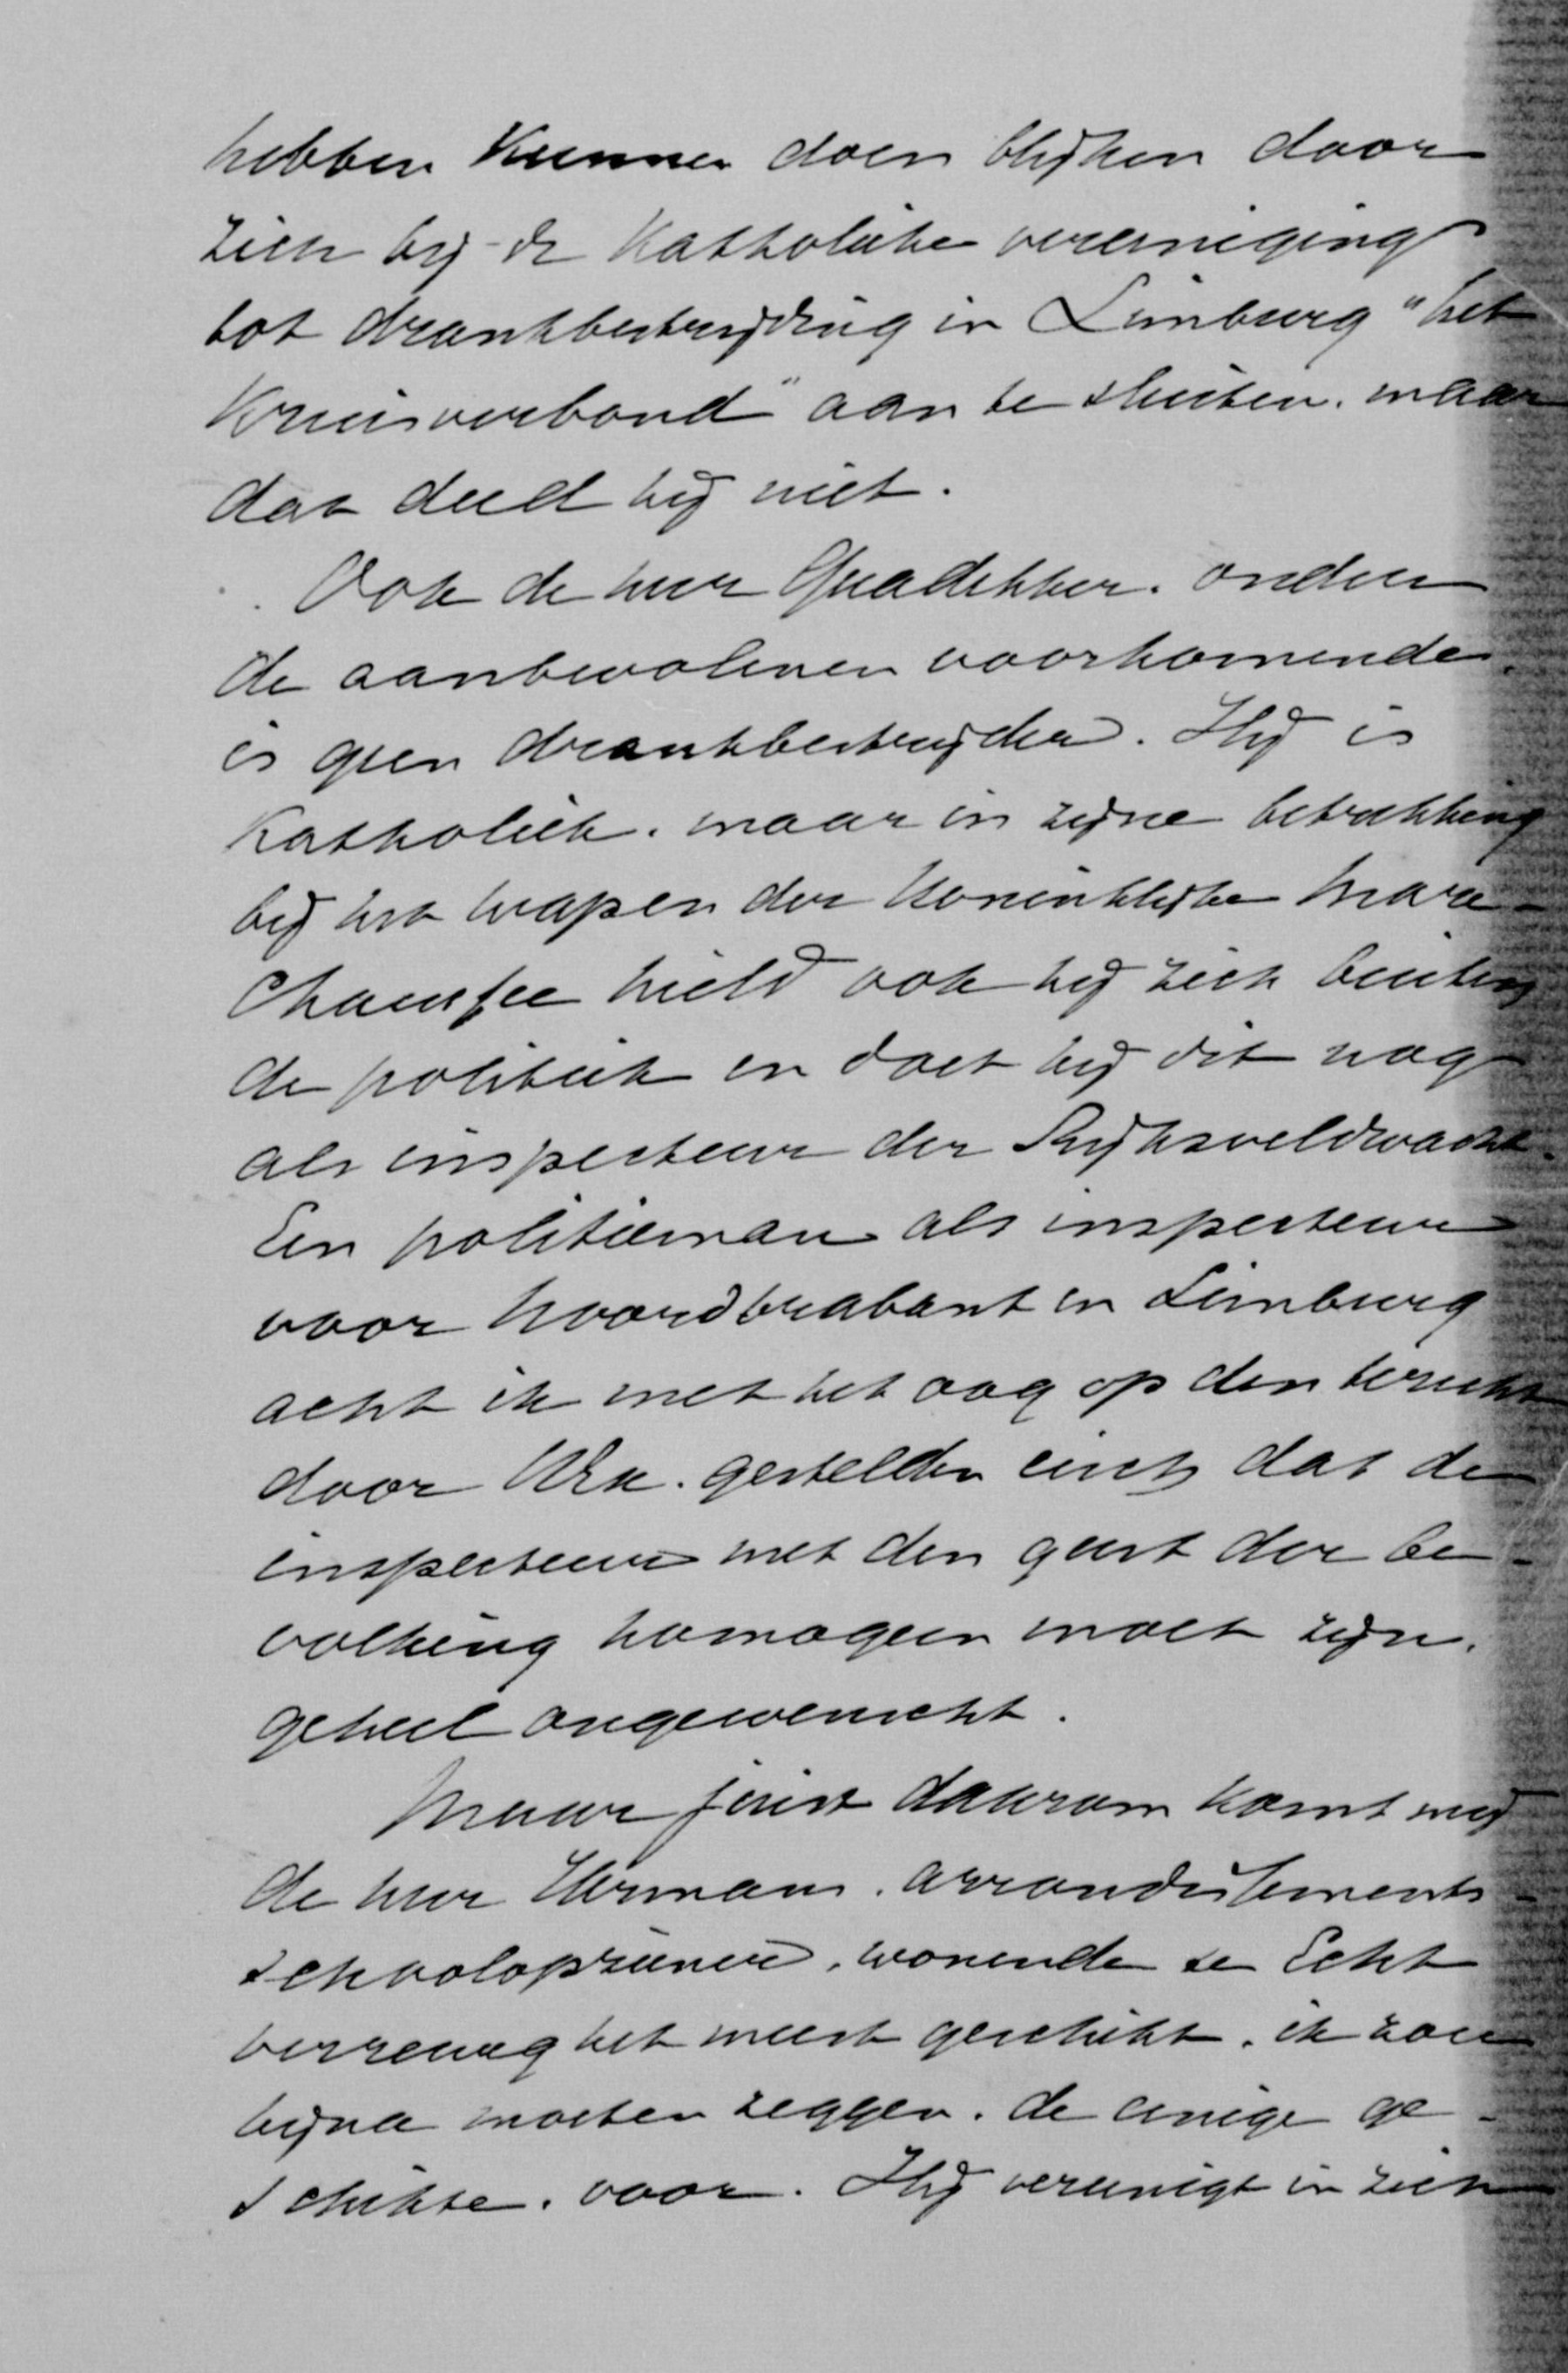 hebben kunnen doen blijken door
zich bij de Katholieke vereeniging
tot drankbestrijding in Limburg "het
Kruisverbond" aan te sluiten, maar
dat deed hij niet.
Ook de heer Quadekker, onder
de aanbevolenen voorkomende,
is geen drankbestrijder. Hij is
Katholiek, maar in zijne betrekking
bij het wapen der Koninklijke Mare-
chaussee hield ook hij zich buiten
de politiek en doet hij dit nog
als inspecteur der Rijksveldwacht.
Een politieman als inspecteur
voor Noordbrabant en Limburg
acht ik met het oog op den terecht
door UEx. gestelden eisch dat de
inspecteur met den geest der be-
volking homogeen moet zijn,
geheel ongewenscht.
Maar juist daarom komt mij
de heer Hermans, arrondissements-
schoolopziener, wonende te Echt
verreweg het meest geschikt, ik zou
bijna moeten zeggen, de eenige ge-
schikte, voor. Hij vereenigt in zich